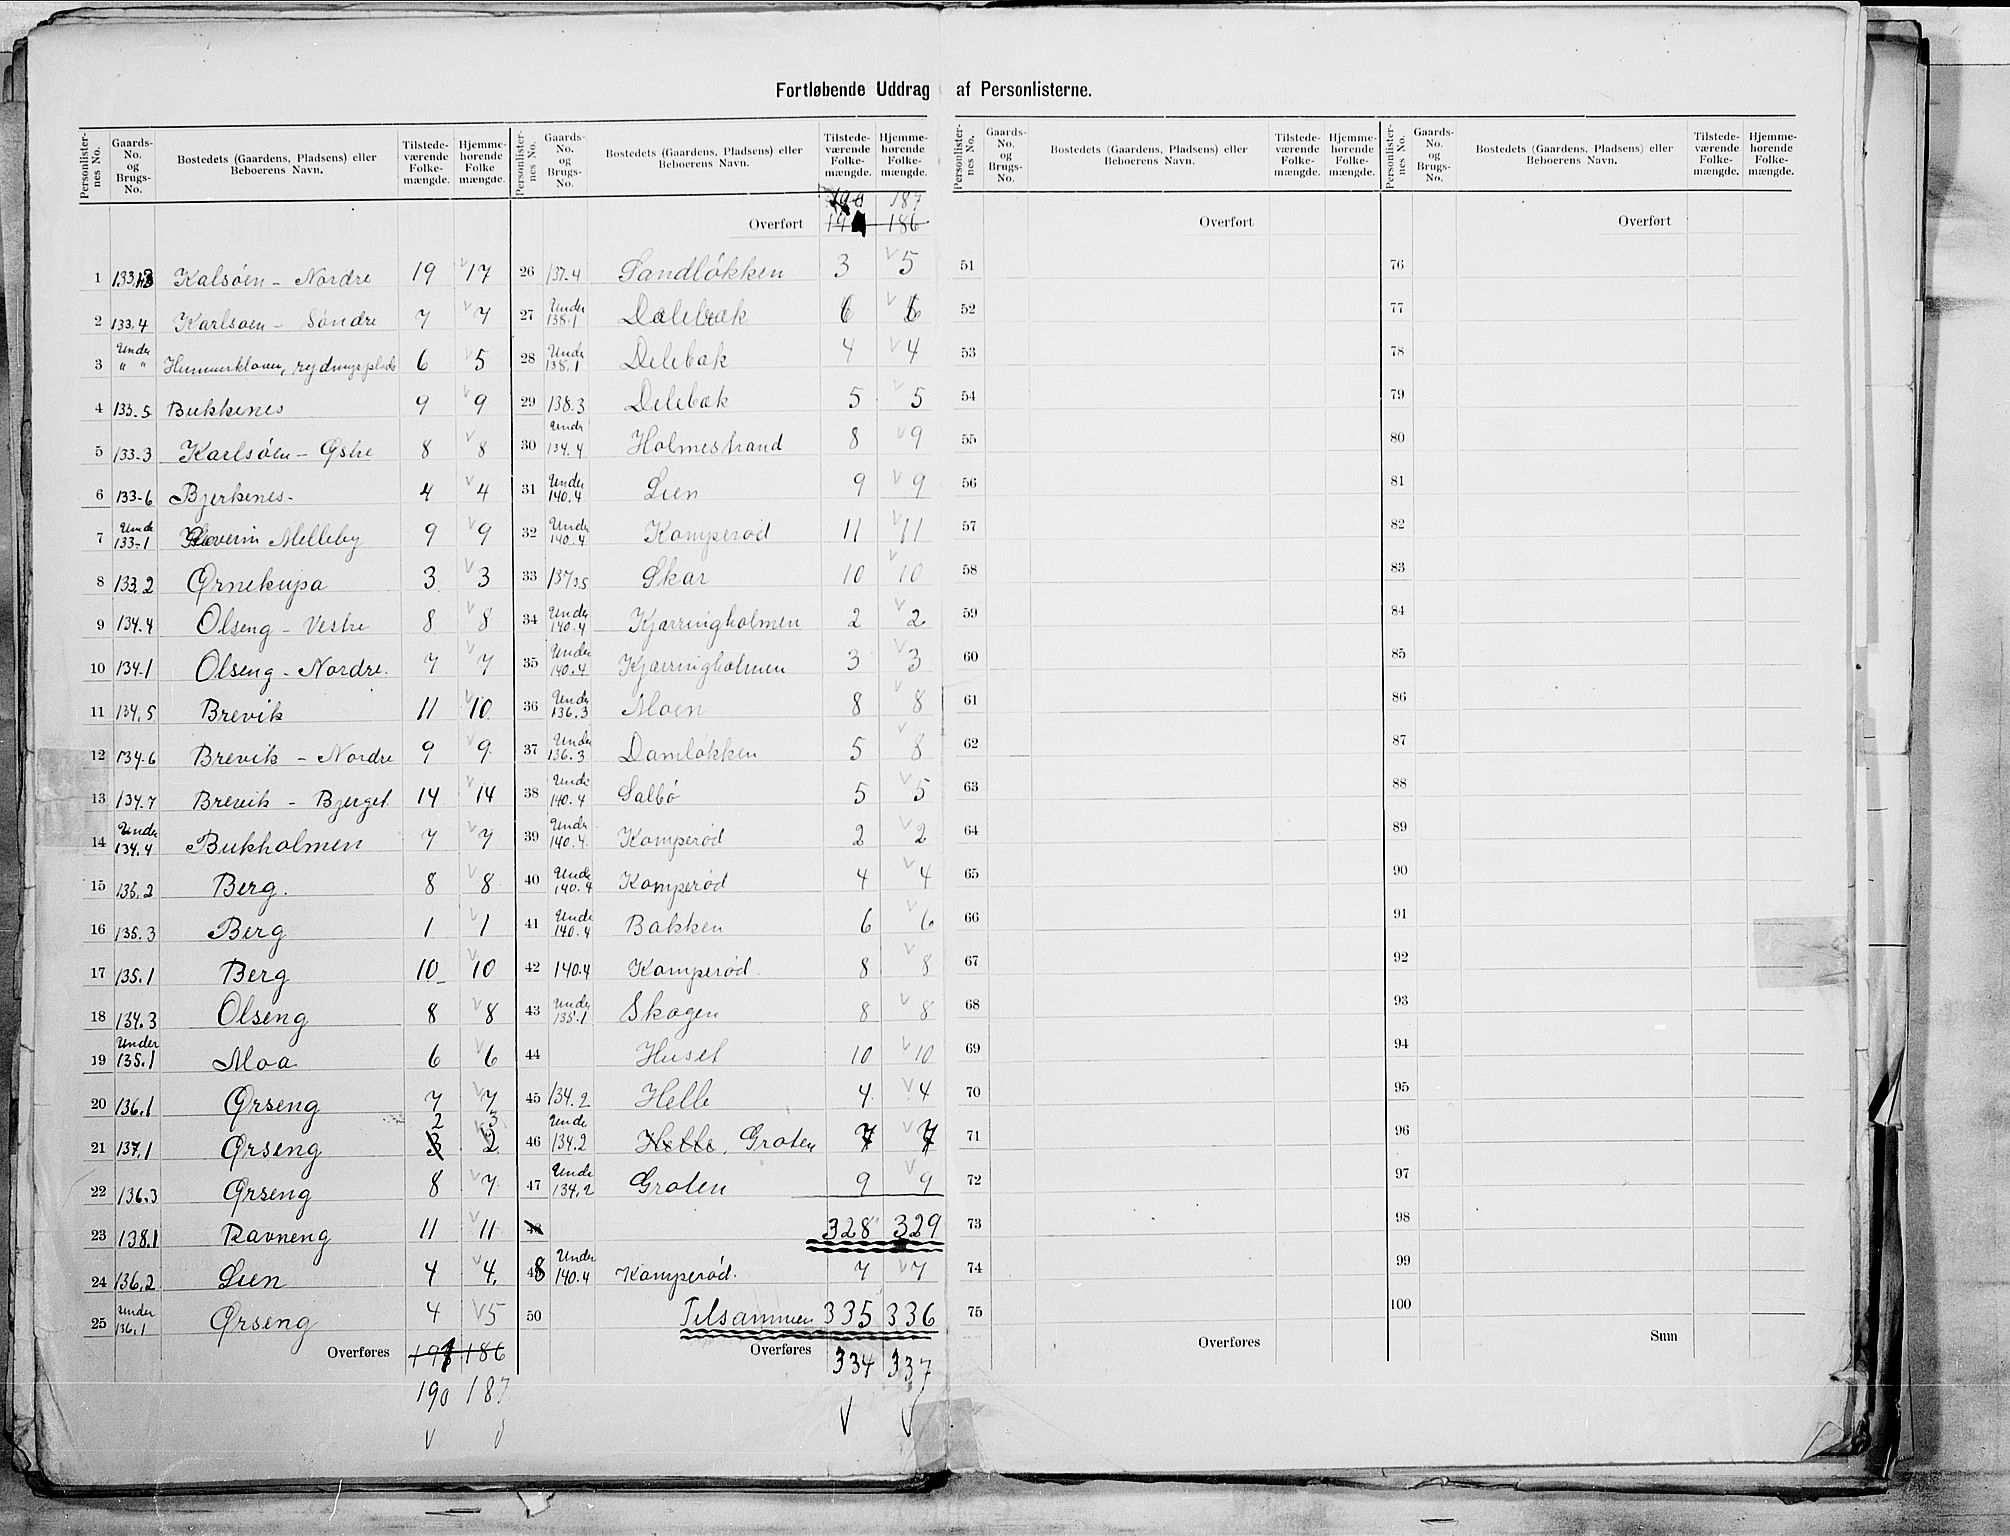 Fortløbende Uddrag af Personlisterne.
Personlisternes No. | Gaards-No. og Brugs-No. | Bostedets (Gaardens, Pladsens) eller Beboerens Navn. | Tilstedeværende Folkemængde. | Hjemmehørende Folkemængde.
Personlisternes No. | Gaards-No. og Brugs-No. | Bostedets (Gaardens, Pladsens) eller Beboerens Navn. | Tilstedeværende Folkemængde. | Hjemmehørende Folkemængde.
Personlisternes No. | Gaards-No. og Brugs-No. | Bostedets (Gaardens, Pladsens) eller Beboerens Navn. | Tilstedeværende Folkemængde. | Hjemmehørende Folkemængde.
Personlisternes No. | Gaards-No. og Brugs-No. | Bostedets (Gaardens, Pladsens) eller Beboerens Navn. | Tilstedeværende Folkemængde. | Hjemmehørende Folkemængde.
1 Kalsøen - Nordre 19 17
2 133.4 Karlsøen - Søndre 7 7
3 Under " " rydningsplads 6 5
4 133-5 Bukkenes 9 9
5 133-3 Karlsøen - Østre 8 8
6 133-6 Bjerkenes- 4 4
7 Unde 133-1 Melleby 9 9
8 133.2 Ørnekupa 3 3
9 134.4 Olseng - Vestre 8 8
10 134-1 Olseng - Nordre. 7 7
11 134.5 Brevik 11 10
12 134-6 Brevik - Nordre 9 9
13 134.7 Brevik - Bjerget 14 14
14 Under 134.4 Bukholmen 7 7
15 135.2 Berg. 8 8
16 135.3 Berg 1 1
17 135.1 Berg 10 10
18 134.3 Olseng 8 8
19 Under 135.1 Moa 6 6
20 136.1 Ørseng 7 7
2 3
21 137.1 Ørseng 3 2
22 136.3 Ørseng 8 7
23 138.1 Ravneng 11 11
24 136.2 Lien 4 4.
25 Under 136.1 Ørseng 4 5
Overføres 191 186
190 187
190 187
Overført 191 186
26 137-4 Sandløkken 3 5
27 Under 138.1 Dalebæk 6 6
28 Under 138.1 Delebæk 4 4
29 138.3 Delebæk 5 5
30 Undr 134.4 Holmestrand 8 9
31 Under 140.4 Lien 9 9
32 Under 140.4 Kamperød 11 11
33 137.5 Skar 10 10
34 Under 140.4 Kjærringholmen 2 2
35 Under 140.4 Kjærringholmen 3 3
36 Under 136.3 Moen 8 8
37 Under 136.3 Damløkken 5 8
38 Unde 140.4 Salbo 5 5
39 Under 140.4 Kamperød 2 2
40 Unde 140.4 Kamperød 4 4
41 Unde 140.4 Bakken 6 6
42 140.4 Kamperød. 8 8
43 Under 135.1 Skogen 8 8
44 Huset 10 10
45 134.2 Helle 4 4
46 Unde 134.2 Helle, Groten 7 7
47 Unde 134.2 Groten 9 9
48 328 329
48 Under 140.4 Kamperød. 7 7
50 Tilsammen 335 336
Overføres 334 337
Overført
51
52
53
54
55
56
57
58
59
60
61
62
63
64
65
66
67
68
69
70
71
72
73
74
75
Overføres
Overført
76
77
78
79
80
81
82
83
84
85
86
87
88
89
90
91
92
93
94
95
96
97
98
99
100
Sum